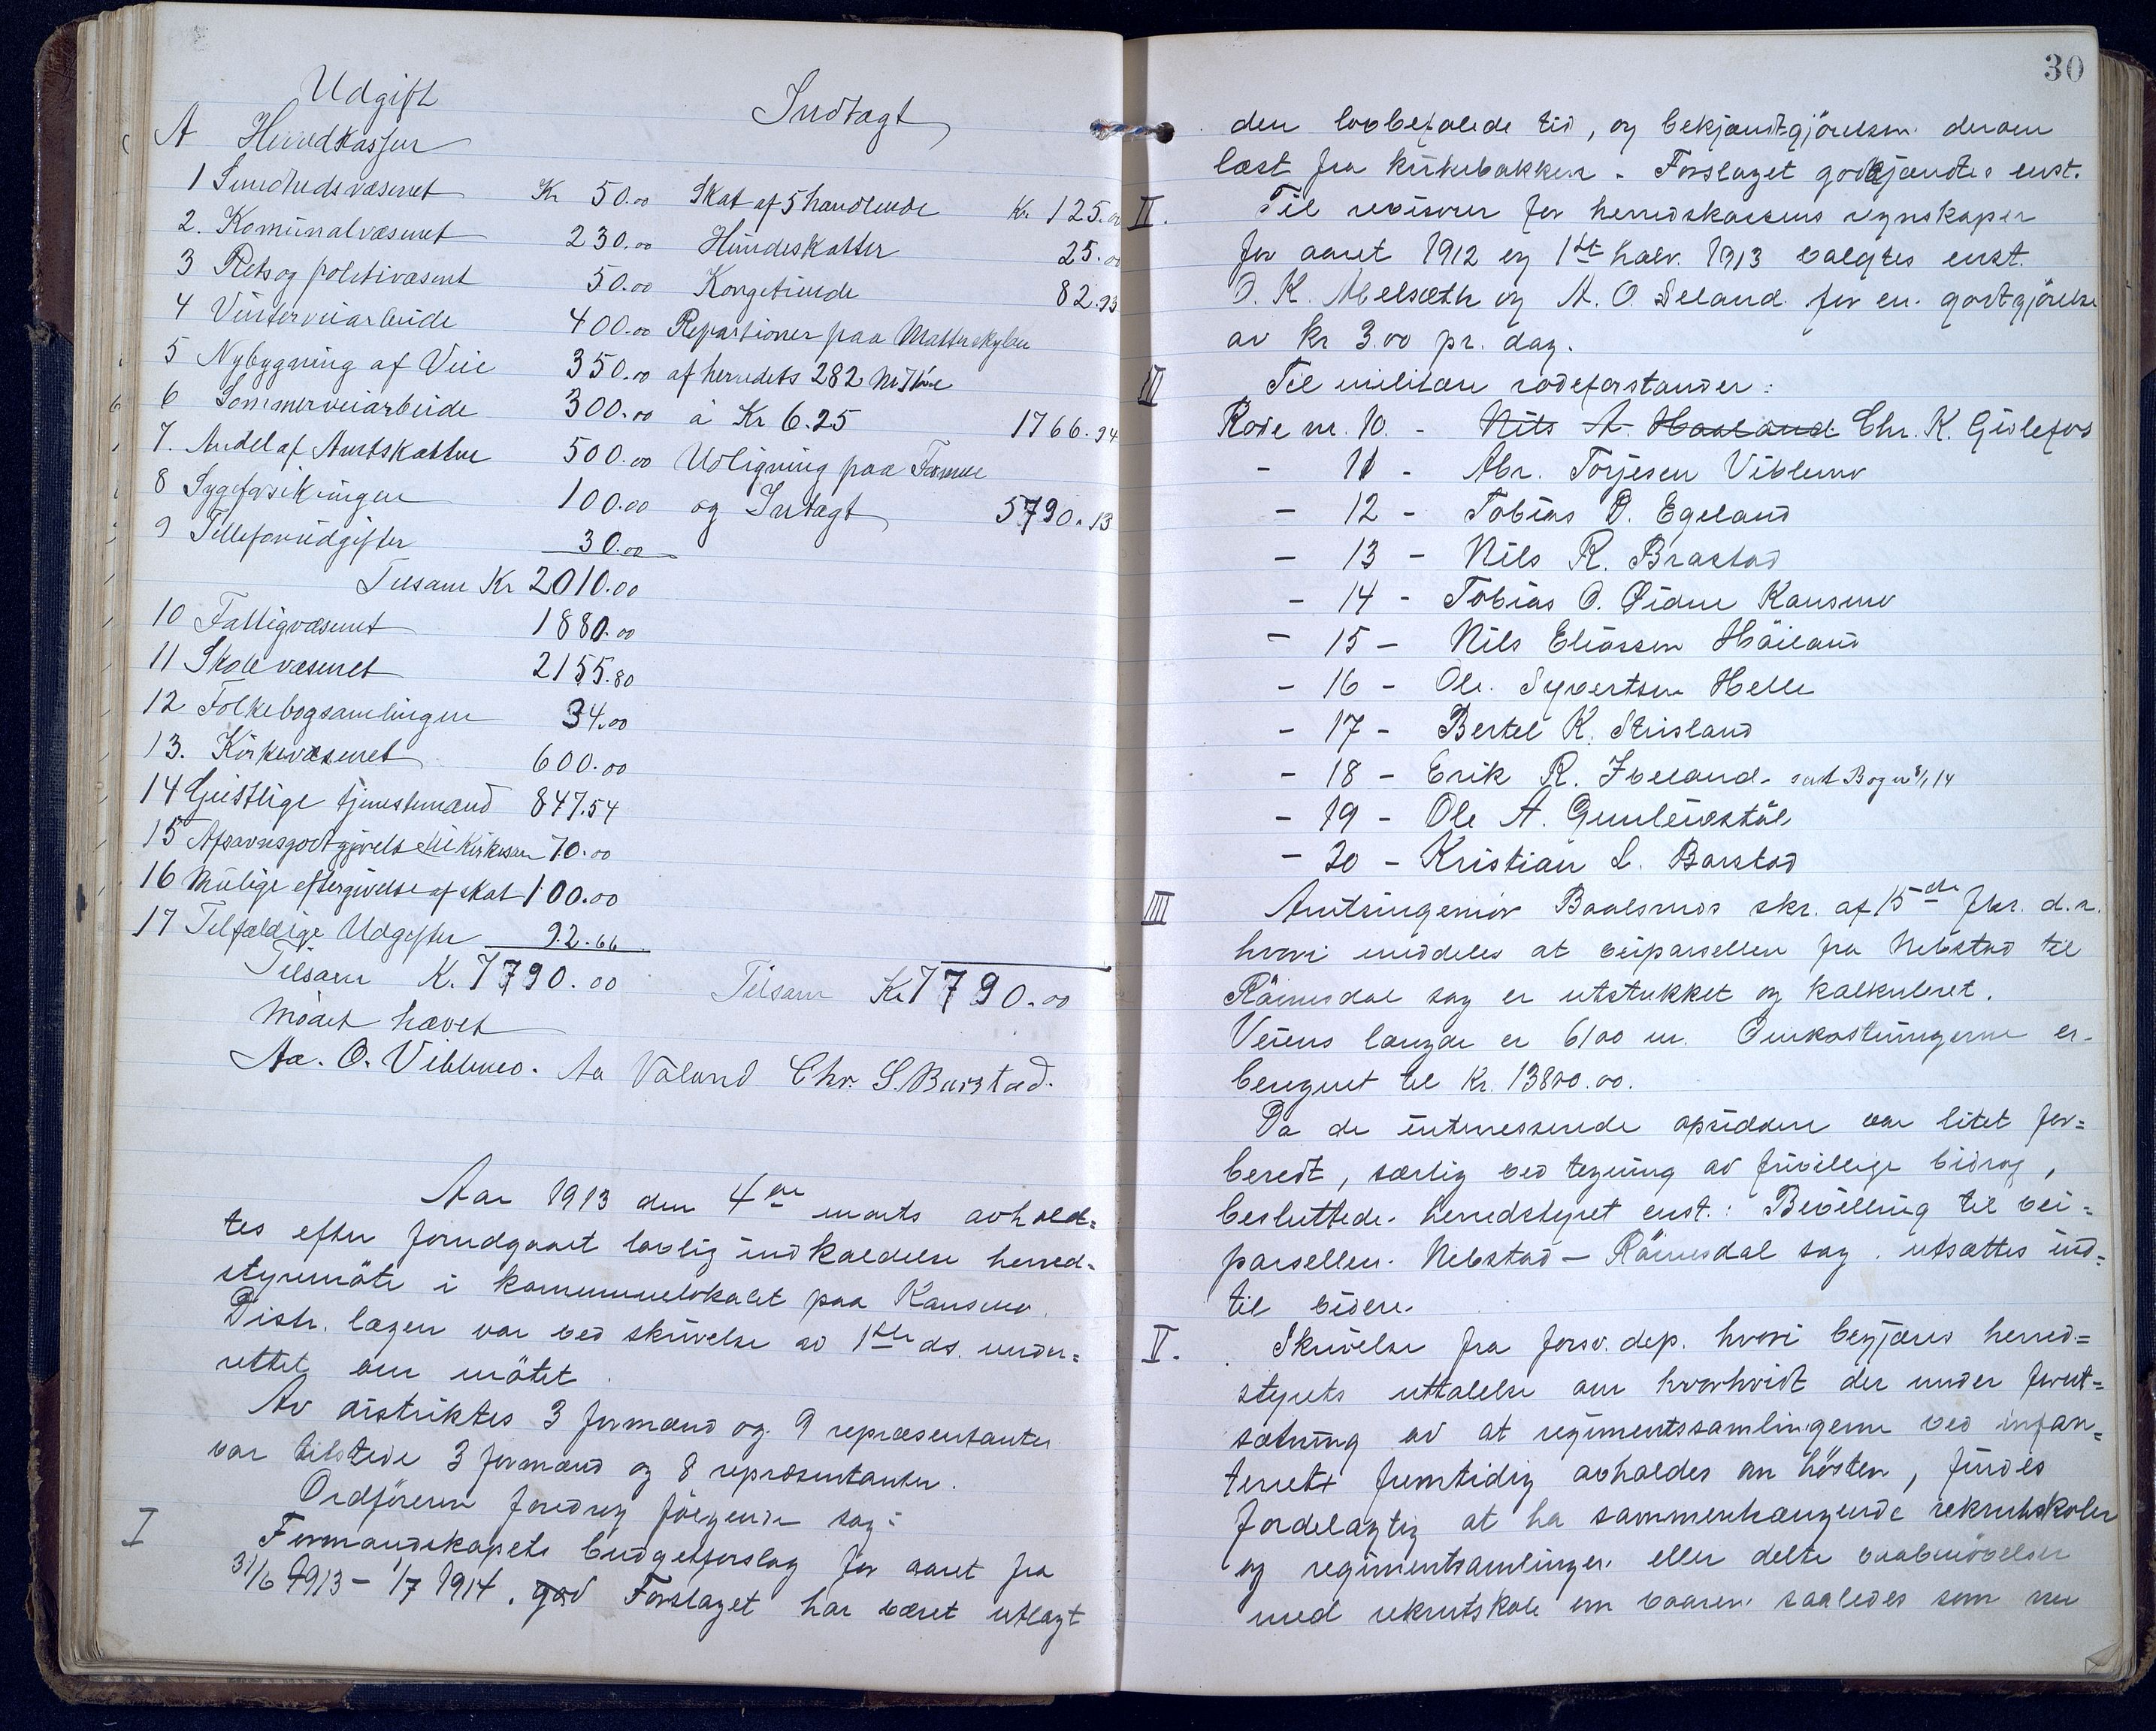 Udgift
Indtagt
A Herredkassen
1 Sundhedsvæsenet Kr 50.00 Skat af 5 handlende Kr 125.00
2. Komünalvæsenet 230.00 Hündeskatter 25.00
3 Rets og politivæsent 50.00 Kongetiende 82.93
4 Vinterveiarbeide 400.00 Repartioner paa Matterskylden
5 Nybygning af Veie 350.00 af herredets 282
6 Sommerveiarbeide 300.00 à Kr 6.25 1766.94
7. Andel af Amtskatten 500.00 Udligning paa Formue
8 Sygeforsikringen 100.00 og Intægt 5790.13
9 Tellefonüdgifter 30.00
Tilsam Kr 2010.00
10 Fattigvæsenet 1880.00
11 Skolevæsenet 2155.80
12 Folkebogsamlingen 34.00
13. Kirkevæsenet 600.00
14 Geistlige tjenestemænd 847.54
15 Afsavnsgodtgjørelse til Kirkesan 70.00
16 Mülige eftergivelse af skat 100.00
17 Tilfældige Udgifter 92.66
Tilsam Kr. 7790.00 Tilsam Kr 7790.00
Mödet hævet
Aa. O. Viblemo. Aa Valand Chr. S. Barstad.
Aar 1913 den 4de marts avhold=
tes efter forudgaaet lovlig indkaldelse herred=
styremöte i kommunelokalet paa Konsmo.
Distr. lægen var ved skrivelse av 1ste ds. under=
rettet om mötet.
Av distriktes 3 formænd og 9 repræsentanter
var tilstede 3 formænd og 8 repræsentanter.
Ordföreren foredrog fölgende sag:
I Formandskapets budgetforslag for aaret fra
31/6 1913 – 1/7 1914. god Forslaget har været utlagt
30
den lovbefalede tid, og bekjendtgjörelsen derom
læst fra kirkebakken. Forslaget godkjendtes enst.
II. Til revisorer for herredskassens regnskaper
for aaret 1912 og 1ste halv. 1913 valgtes enst.
O. K. Abelsæth og A. O. Seland for en godtgjörelse
av kr 3.00 pr. dag.
III Til militære rodeforstander:
Rode nr. 10. - Nils A. Haaland Chr. K. Gislefos
- 11 - Abr. Torjesen Viblemo
- 12 - Tobias D. Egeland
- 13 - Nils R. Brastad
- 14 - Tobias O. Øidne Konsmo
- 15 - Nils Eliassen Höiland
- 16 - Ole Syvertsen Helle
- 17 - Bertel K. Strisland
- 18 - Erik R. Ibeland - sendt Bogen 8/1 14
- 19 - Ole A. Gunleikstöl
- 20 - Kristian L. Barstad
IIII Amtsingeniør Baalsruds skr. af 15de fbr. d.a.
hvori meddeles at veiparsellen fra Nebstad til
Röinesdal sag er utstukket og kalkuleret.
Veiens længde er 6100 m. Omkostningerne er
beregnet til kr. 13800.00.
Da de interesserede opsiddere var litet for=
beredt, særlig ved tegning av frivillige bidrag,
besluttede herredstyret enst.: Bevilling til vei=
parsellen Nebstad – Röinesdal sag utsættes ind=
til videre.
V. Skrivelse fra forsv. dep. hvori begjæres herred=
styrets uttalelse om hvorhvidt der under forut=
sætning av at regimentssamlingerne ved infan=
teriet fremtidig avholdes om hösten, findes
fordelagtig at ha sammenhængende rekrutskoler
og regimentsamlinger eller delte vaabenövelser
med rekrutskole om vaaren saaledes som nu